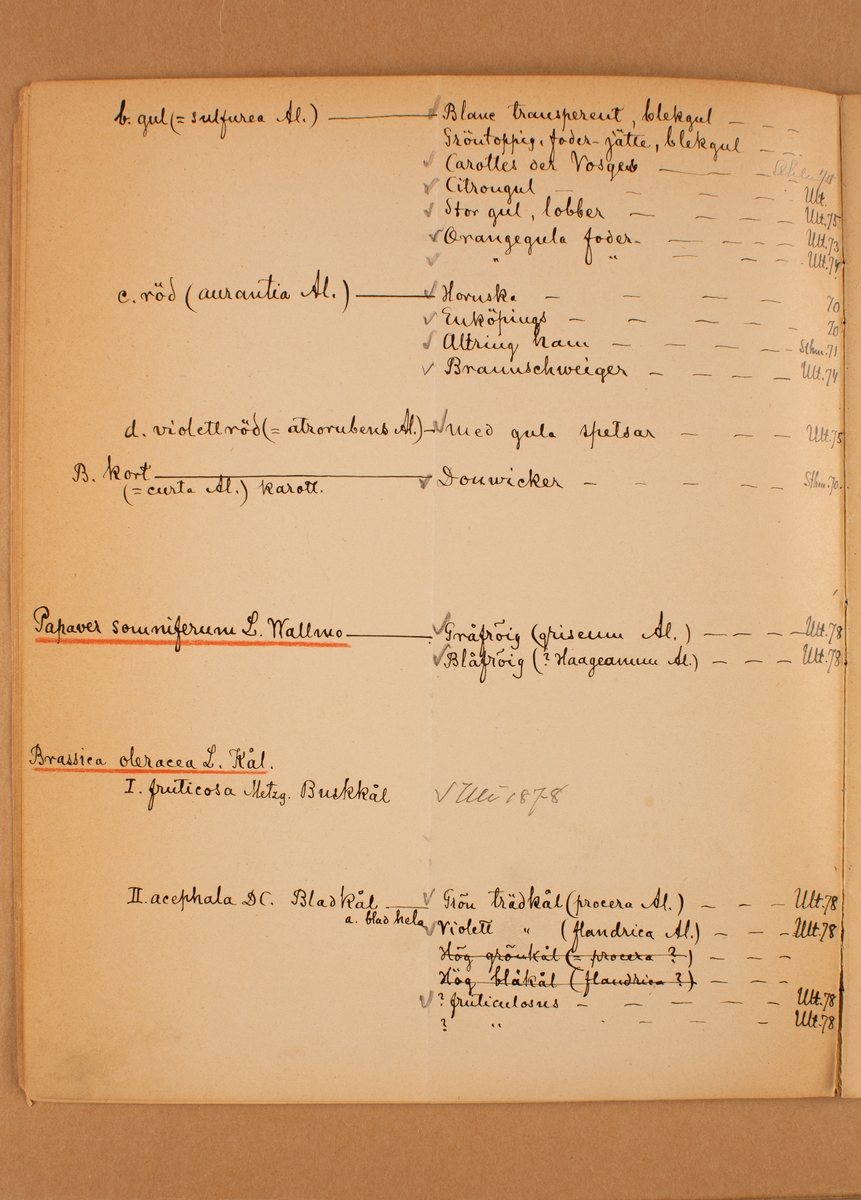 b. gul (= sulfurea Al.) — ✓ Blanc transperent, blekgul — — —
Gröntoppig, foder-jätte, blekgul — —
✓ Carottes der Vosges — — —
✓ Citrongul — — — Ult.
✓ Stor gul, lobber — — — Ult. 75
✓ Orangegula foder- — — — Ult. 73
✓ " " — — — Ult. 74
c. röd (aurantia Al.) — ✓ Hornska — — — — 70
✓ Enköpings — — — — 70
✓ Altring ham — — — — Sthm. 71
✓ Braunschweiger — — — Ult. 74
d. violettröd (= atrorubens Al.) — ✓ med gula spetsar — — — Ult. 75
B. kort — ✓ Donwicker — — — — Sthm. 70.
(= curta Al.) karott.
Papaver somniferum L. Wallmo — ✓ Gråfröig (griseum Al.) — — — Ult. 78
✓ Blåfröig (? Haageanum Al.) — — — Ult. 78
Brassica oleracea L. Kål.
I. fruticosa Metzg. Buskkål ✓ Ult 1878
II. acephala DC. Bladkål — ✓ Grön trädkål (procera Al.) — — — Ult. 78
a. blad hela ✓ Violett " (flandrica Al.) — — — Ult. 78
Hög grönkål (= procera ?) — — —
Hög blåkål (flandrica ?) — — —
✓ ? fruticulosus — — — — Ult. 78
? " — — — Ult. 78